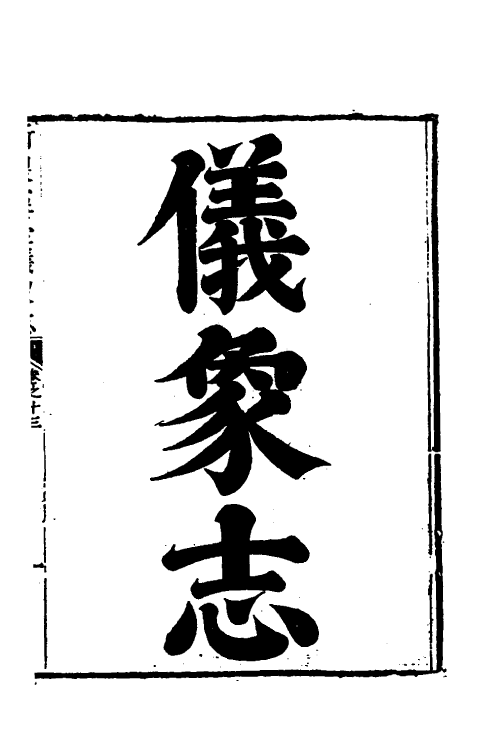 儀象志
卷之十三